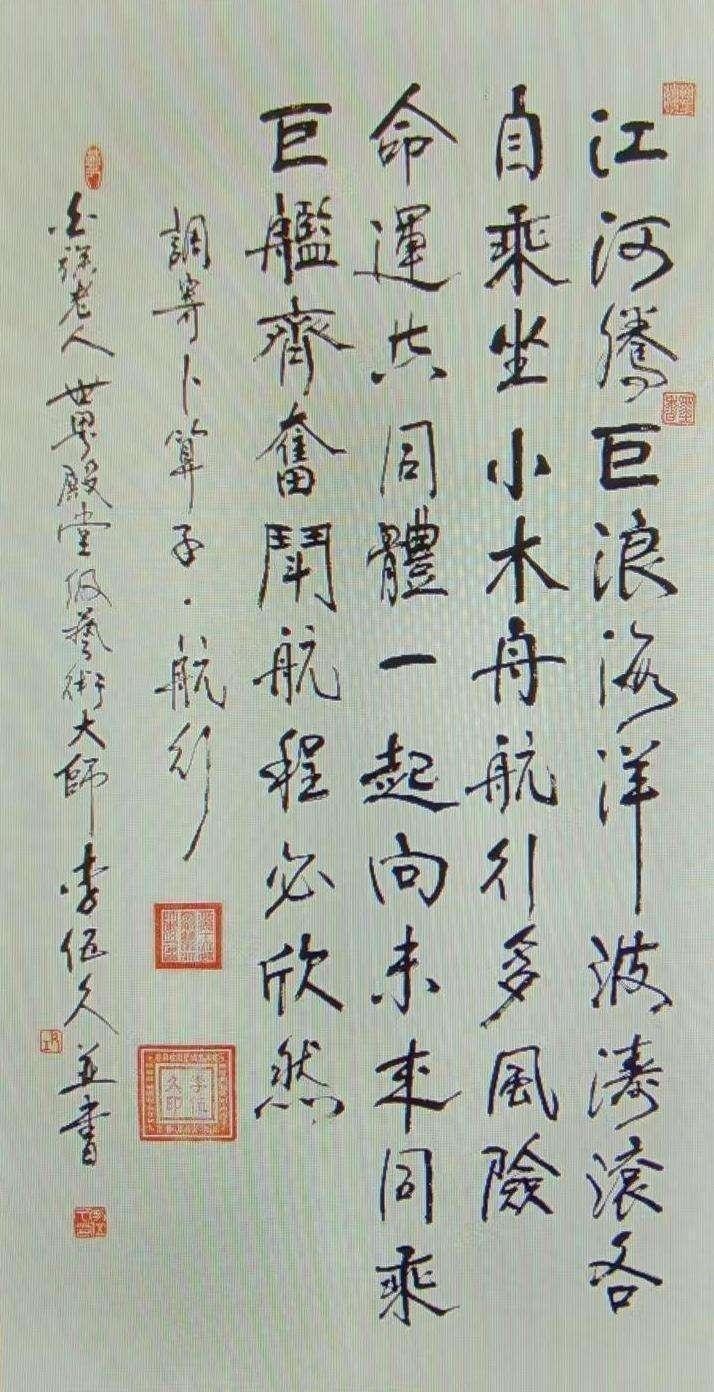 江河騰巨浪海洋波濤滾各
自乘坐小木舟航行多風險
命運共同體一起向未來同乘
巨艦齊奮鬪航程必欣然
調寄卜算子·航行
老人世界殿堂级藝術大師李伍久並書
李伍
久印